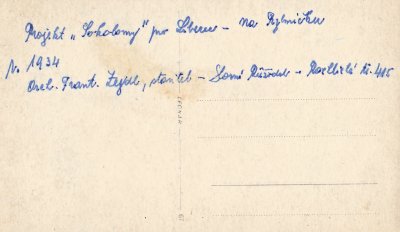 Projekt „Sokolovny" pro Liberec – na Rybníčku
r. 1934
Arch. Frant. Zejdl, stavitel – Horní Růžodol – Rochlická č. 415